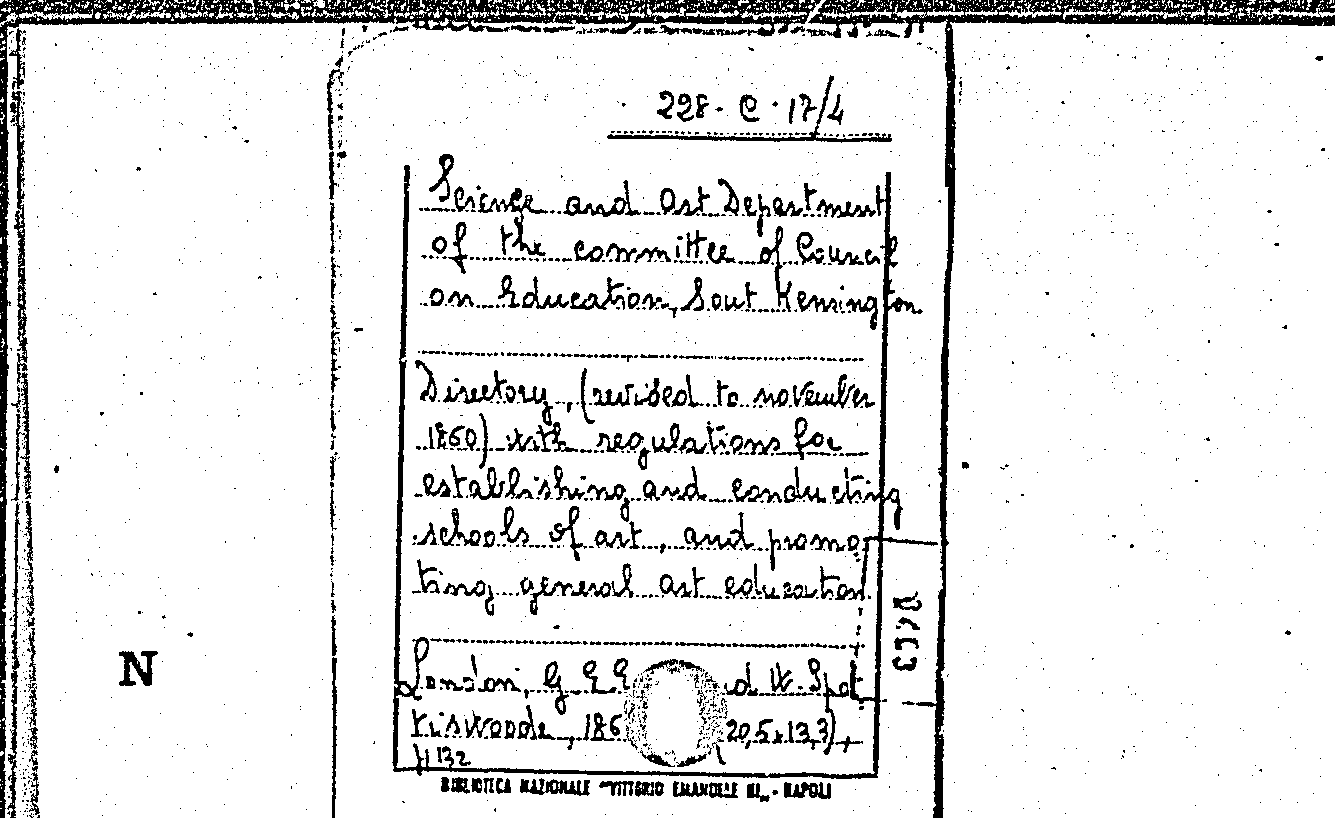 228. C. 17/4
Science and Art Department
of the committee of Council
on Education, Sout Kensington
Directory, (revised to november
1860) with regulations for
establishing and conducting
schools of art, and promo
ting general art education
London, G. E. E d W. Spot
tiswoode, 186 20,5x13,3),
N
BIBLIOTECA NAZIONALE "VITTORIO EMANUELE III" - NAPOLI